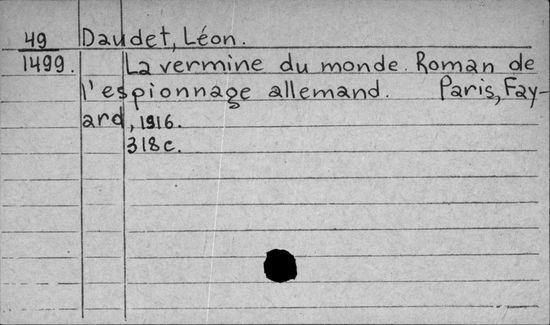 49 Daudet, Léon.
1499. La vermine du monde. Roman de
l'espionnage allemand. Paris, Fay-
ard, 1916.
318c.